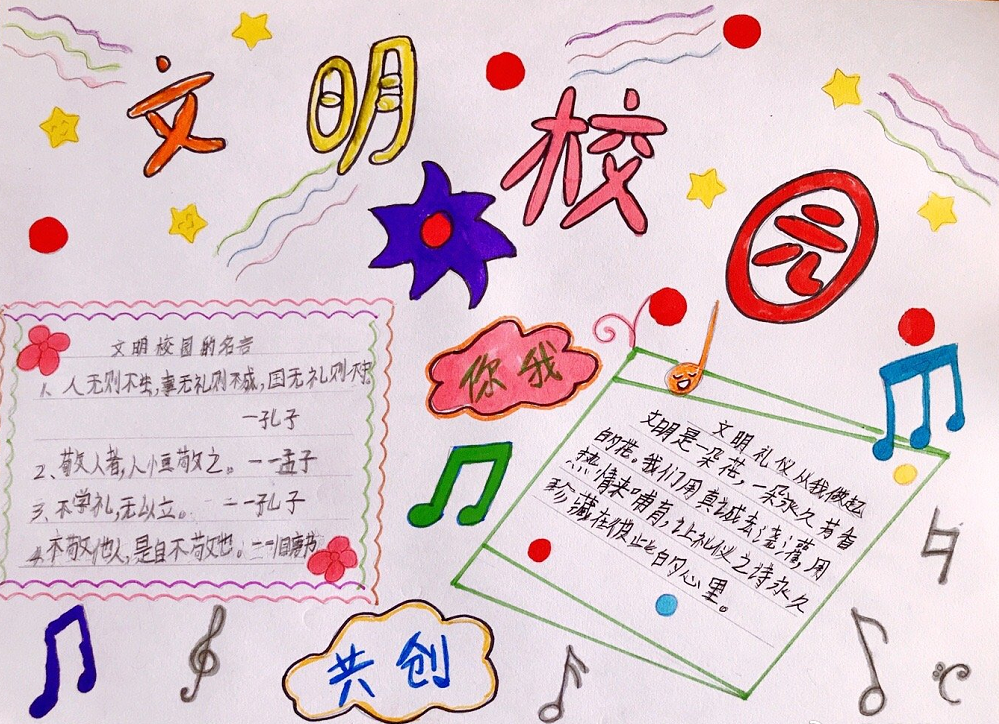 文明校园
文明校园的名言
1、人无则不生,事无礼则不成,国无礼则不宁
—孔子
2、敬人者,人恒敬之。——孟子
3、不学礼,无以立。——孔子
4、不敬他人,是自不敬也。——旧唐书
你我
文明礼仪从我做起
文明是一朵花,一朵永久芳香
的花。我们用真诚去浇灌,用
热情来哺育,让礼仪之诗永久
珍藏在彼此的心里。
共创